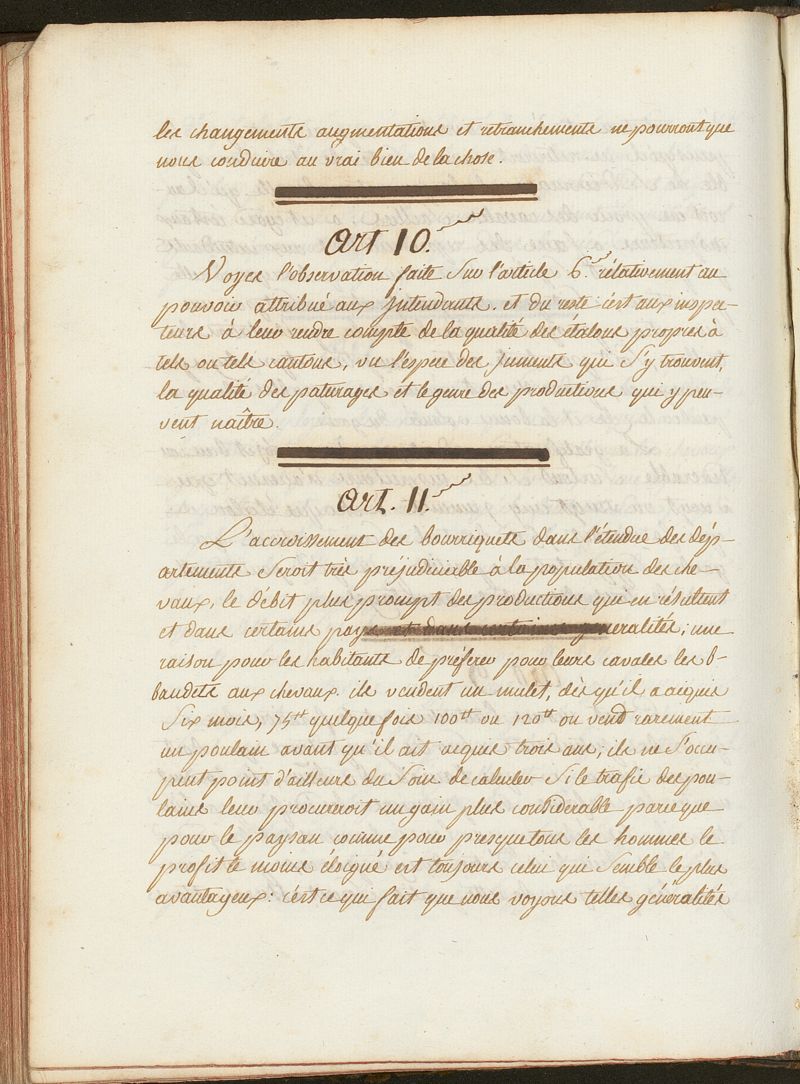 les changements augmentations et retranchements ne pourront que
nous conduire au vrai bien de la chose.
Art 10.
Voyes l'observation faite sur l'article 6. rélativement au
pouvoir attribué aux Intendants. et du reste c'est aux inspec-
teurs à leur rendre compte de la qualité des étalons propres à
tels ou tels cantons, vu l'espece des juments qui s'y trouvent,
la qualité des paturages et le genre des productions qui y peu-
vent naître.
Art. 11.
L'accroissement des bourriquets dans l'étendue des dép-
artements seroit très préjudiciable à la population des che-
vaux, le débit plus prompt des productions qui en résultent
et dans certains pays et dans certaines généralités; une
raison pour les habitants de préferer pour leurs cavales les b-
baudets aux chevaux. ils vendent un mulet, dès qu'il a acquis
six mois, 75tt quelque fois 100tt ou 120tt on vend rarement
un poulain avant qu'il ait acquis trois ans; ils ne s'occu-
pent point d'ailleurs du soin de calculer si le trafic des pou-
lains leur procureroit un gain plus considerable parce que
pour le paysan comme pour presque tous les hommes le
profit le moins éloigné est toujours celui qui semble le plus
avantageux: c'est ce qui fait que nous voyons telles généralités